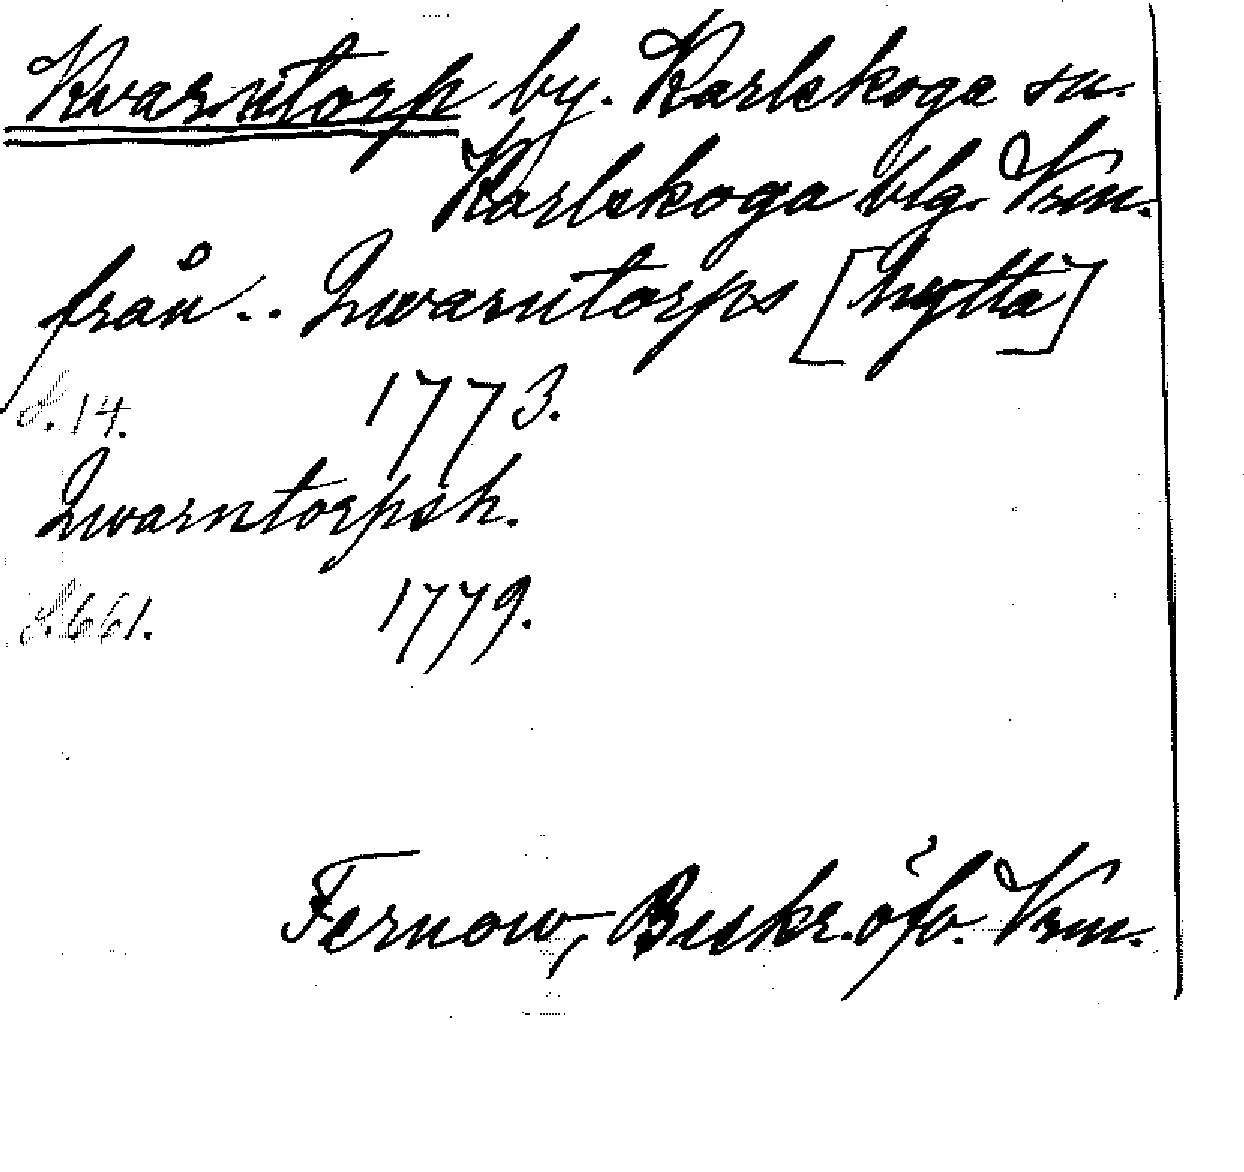 Kvarntorp by. Karlskoga sn.
Karlskoga blg. Vrm.
från .. Qwarntorps [hytta]
S. 14. 1773.
Qwarntorpsh.
S. 661. 1779.
Fernow, Beskr. öfv. Vrm.